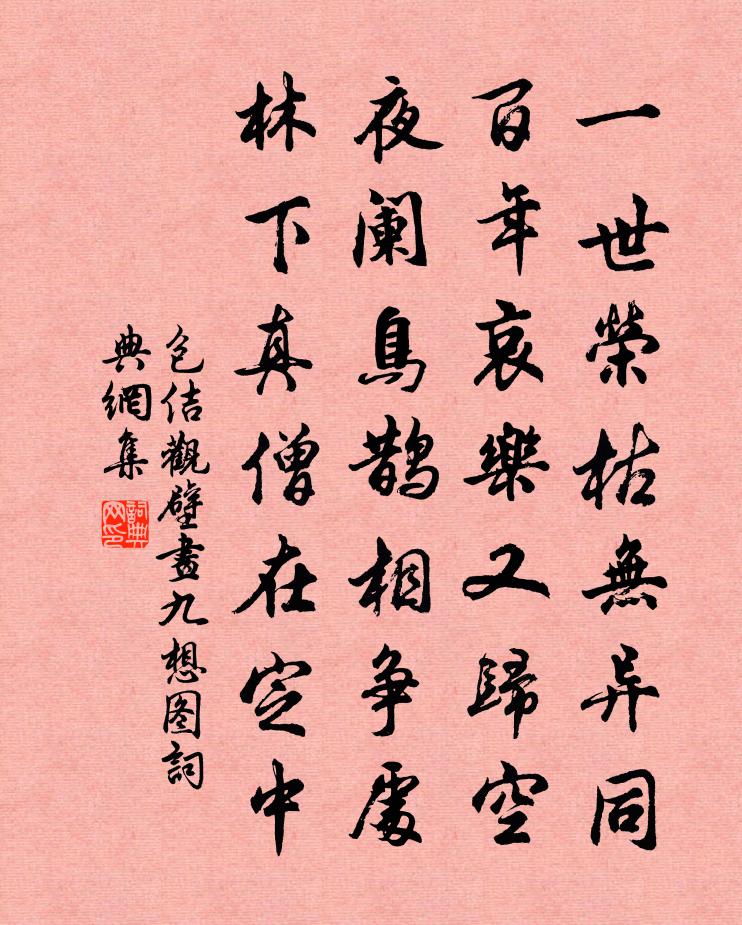 一世榮枯無异同
百年哀樂又歸空
夜阑鳥鹊相争處
林下真僧在定中
包佶觀壁畫九想图詞
典網集
詞典网印